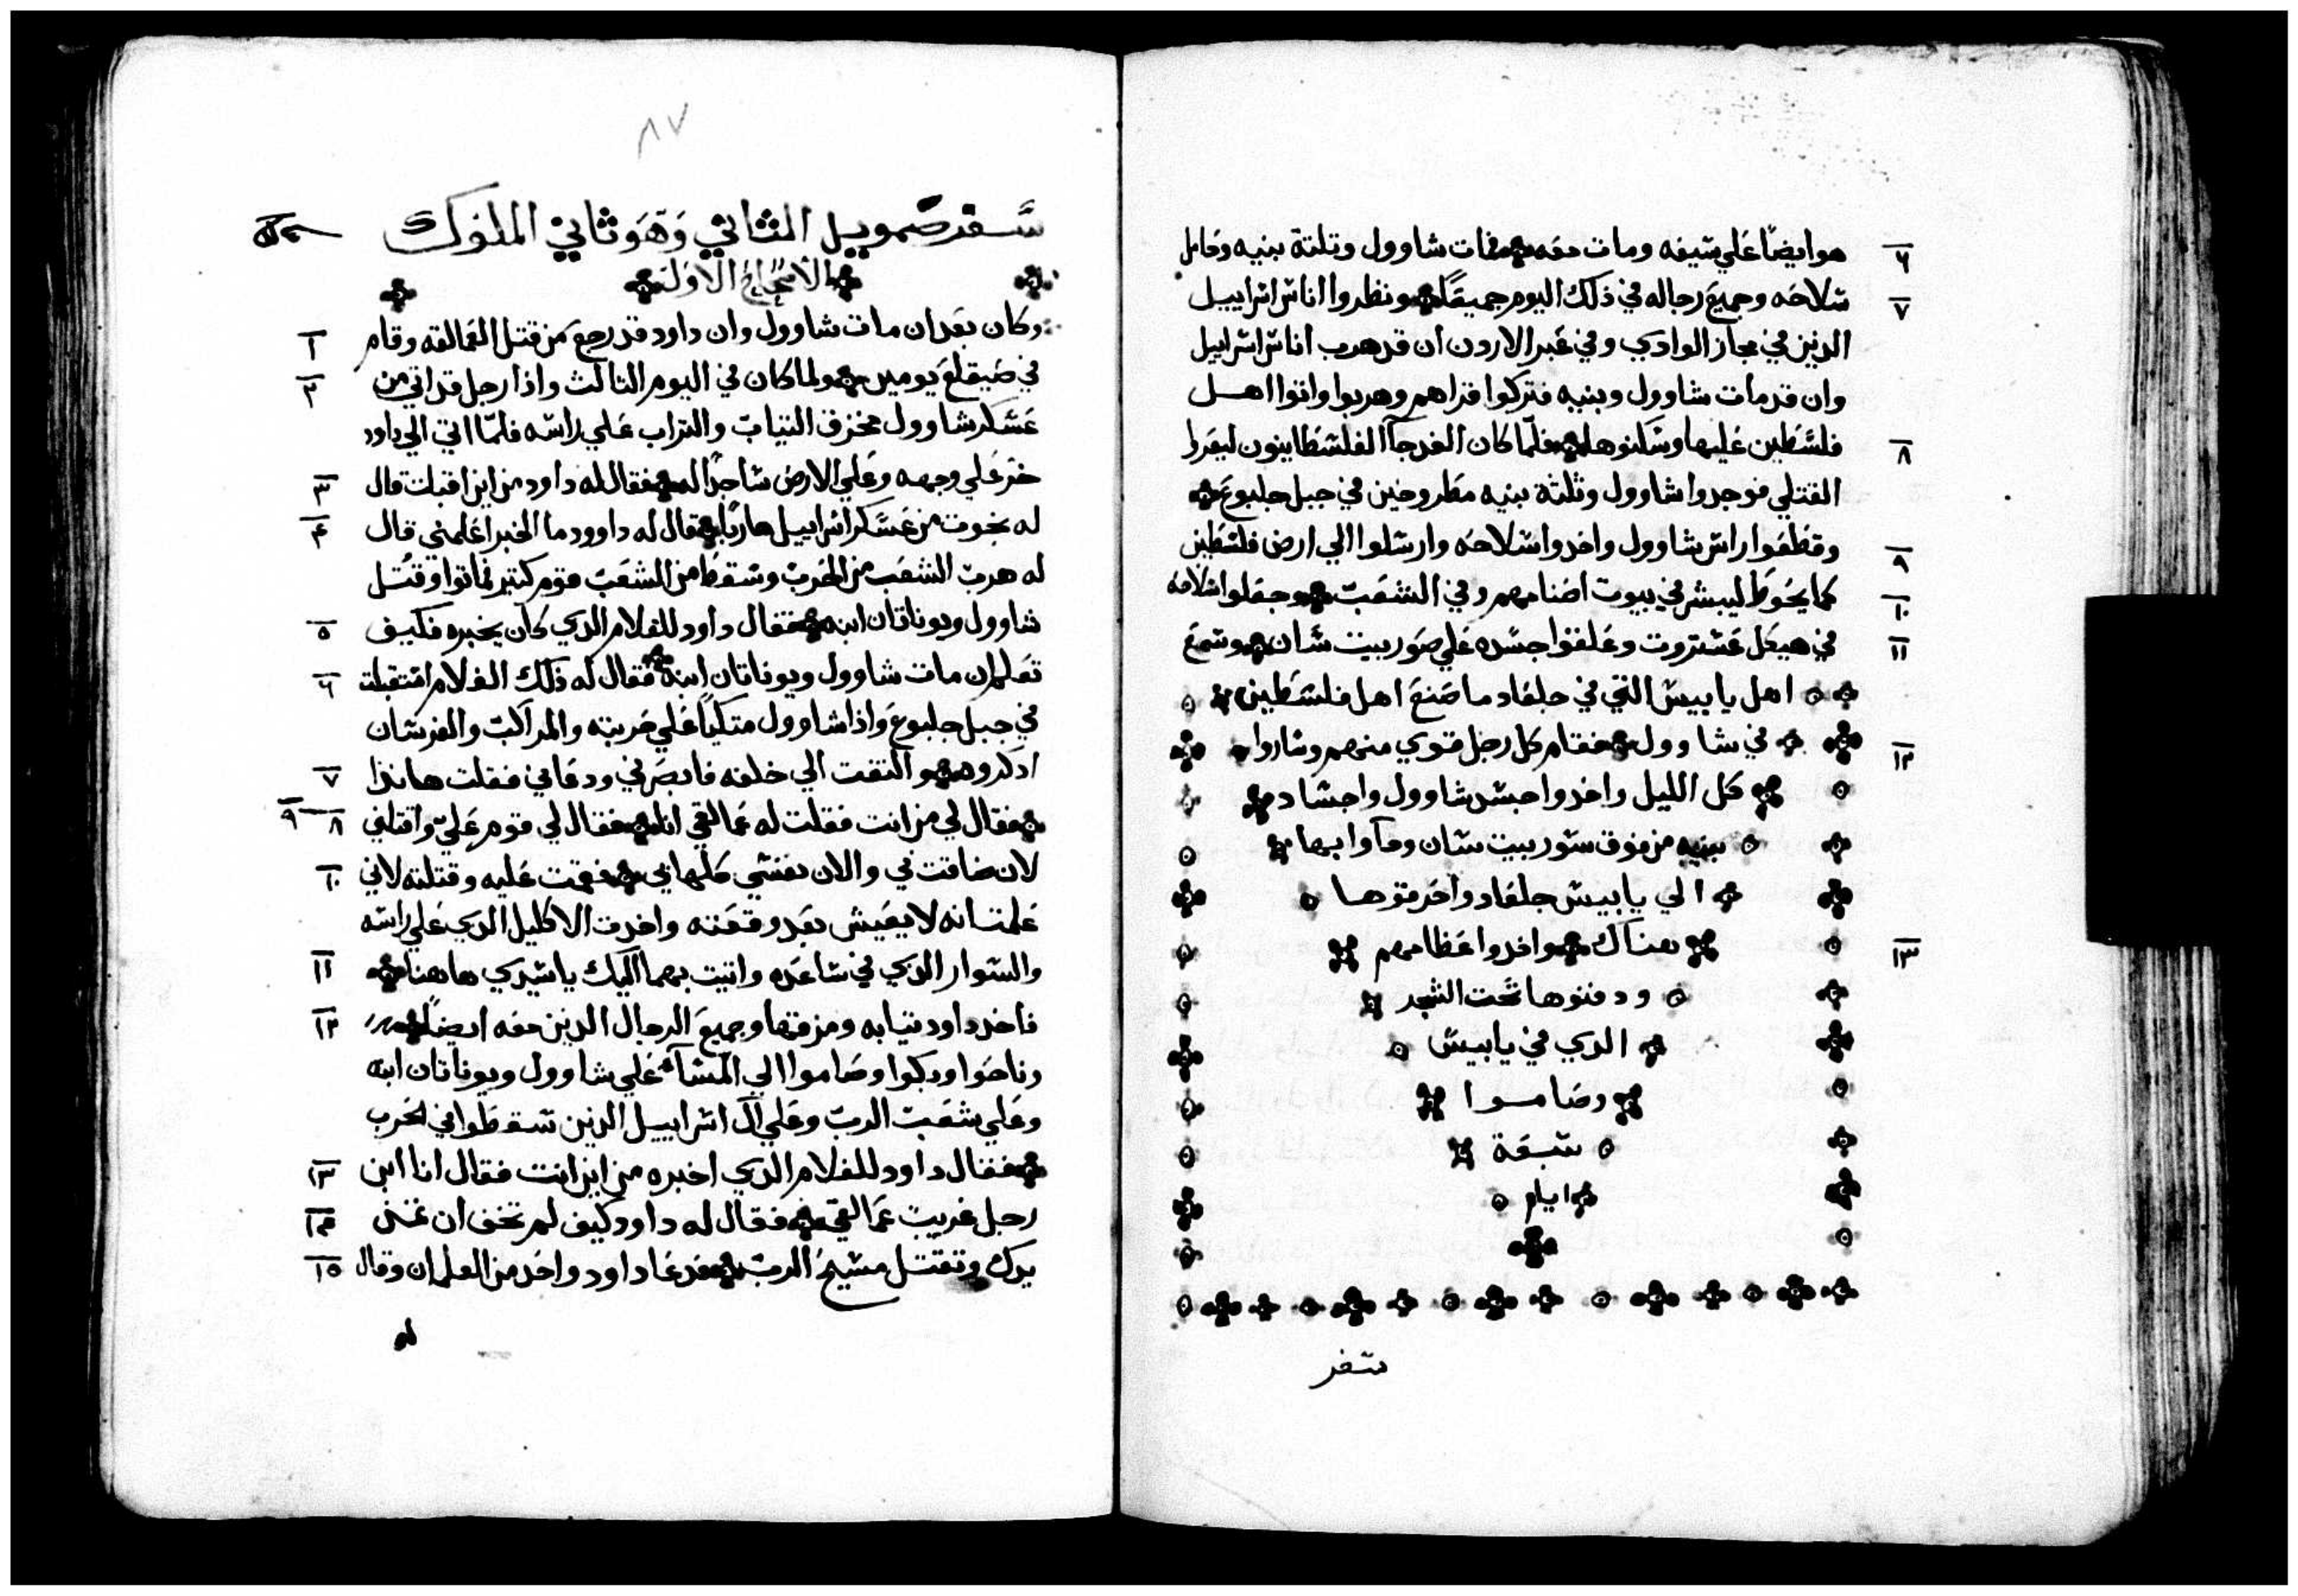 هو ايضًا علي سيفه ومات معه فمات شاوول وتلتة بنيه وحامل
٦
سلاحه وجميع رجاله في ذلك اليوم جميعًا ونظروا اناس اسراييل
٧
الدين في مجاز الوادي وفي عبر الاردن ان قد هرب اناس اسراييل
وان قد مات شاوول وبنيه فتركوا قراهم وهربوا واتوا اهل
فلسطين عليها وسكنوها فلما كان الغد جآ الفلسطانيون ليعروا
٨
القتلي فوجدوا شاوول وثلثة بنيه مطروحين في جبل جلبوع
وقطعوا راس شاوول واخدوا سلاحه وارسلوا الي ارض فلسطين
٩
كما يحوط ليبشر في بيوت اصنامهم وفي الشعب وجعلوا سلاحه
١٠
في هيكل عشتروت وعلقوا جسده علي صور بيت شان وسمع
١١
اهل يابيس التي في جلعاد ما صنع اهل فلسطين
في شاوول فقام كل رجل قوي منهم وساروا
١٢
كل الليل واخدوا جسد شاوول واجساد
بنيه من فوق سور بيت شان وجآوا بها
الي يابيس جلعاد واحرقوها
هناك واخدوا عظامهم
١٣
ودفنوها تحت الشجر
الدي في يابيس
وصاموا
سبعة
ايام
سفر
٨٧
سفر صمويل الثاني وهو ثاني الملوك
الاصحاح الاول
وكان بعد ان مات شاوول وان داود قد رجع من قتل العمالقه وقام
١
في صيقلغ يومين ولما كان في اليوم التالث واذا رجل قد اتي من
٢
عسكر شاوول مخزق التياب والتراب علي راسه فلما اتي الي داود
خر علي وجهه وعلي الارض ساجدًا له فقال له داود من اين اقبلت قال
٣
له نجوت من عسكر اسراييل هاربًا قال له داوود ما الخبر اعلمني قال
٤
له هرب الشعب من الحرب وسقط من الشعب قوم كتير فماتوا وقتل
شاوول ويوناتان ابنه فقال داود للغلام الدي كان يخبره فكيف
٥
تعلم ان مات شاوول ويوناتان ابنه فقال له ذلك الغلام استقبلت
٦
في جبل جلبوع واذا شاوول متكيًا علي حربته والمراكب والفرسان
ادركوه والتفت الي خلفه فابصرني ودعاني فقلت هانذا
٧
فقال لي من انت فقلت له عمالقي انا فقال لي قوم علي واقتلني
٨ ٩
لان ضاقت في والان نفسي كلها في فقمت عليه وقتلته لاني
١٠
علمت انه لا يعيش بعد وقعته واخدت الاكليل الدي علي راسه
والسوار الدي في ساعده واتيت بهما اليك ياسيدي هاهنا
١١
فاخد داود تيابه ومزقها وجميع الرجال الدين معه ايضًا
١٢
وناحوا وبكوا وصاموا الي المسآ علي شاوول ويوناتان ابنه
وعلي شعب الرب وعلي آل اسراييل الدين سقطوا في الحرب
فقال داود للغلام الدي اخبره من اين انت فقال انا ابن
١٣
رجل غريب عمالقي فقال له داود كيف لم تخف ان تمد
١٤
يدك وتقتل مسيح الرب فدعا داود واحد من الغلمان وقال
١٥
له